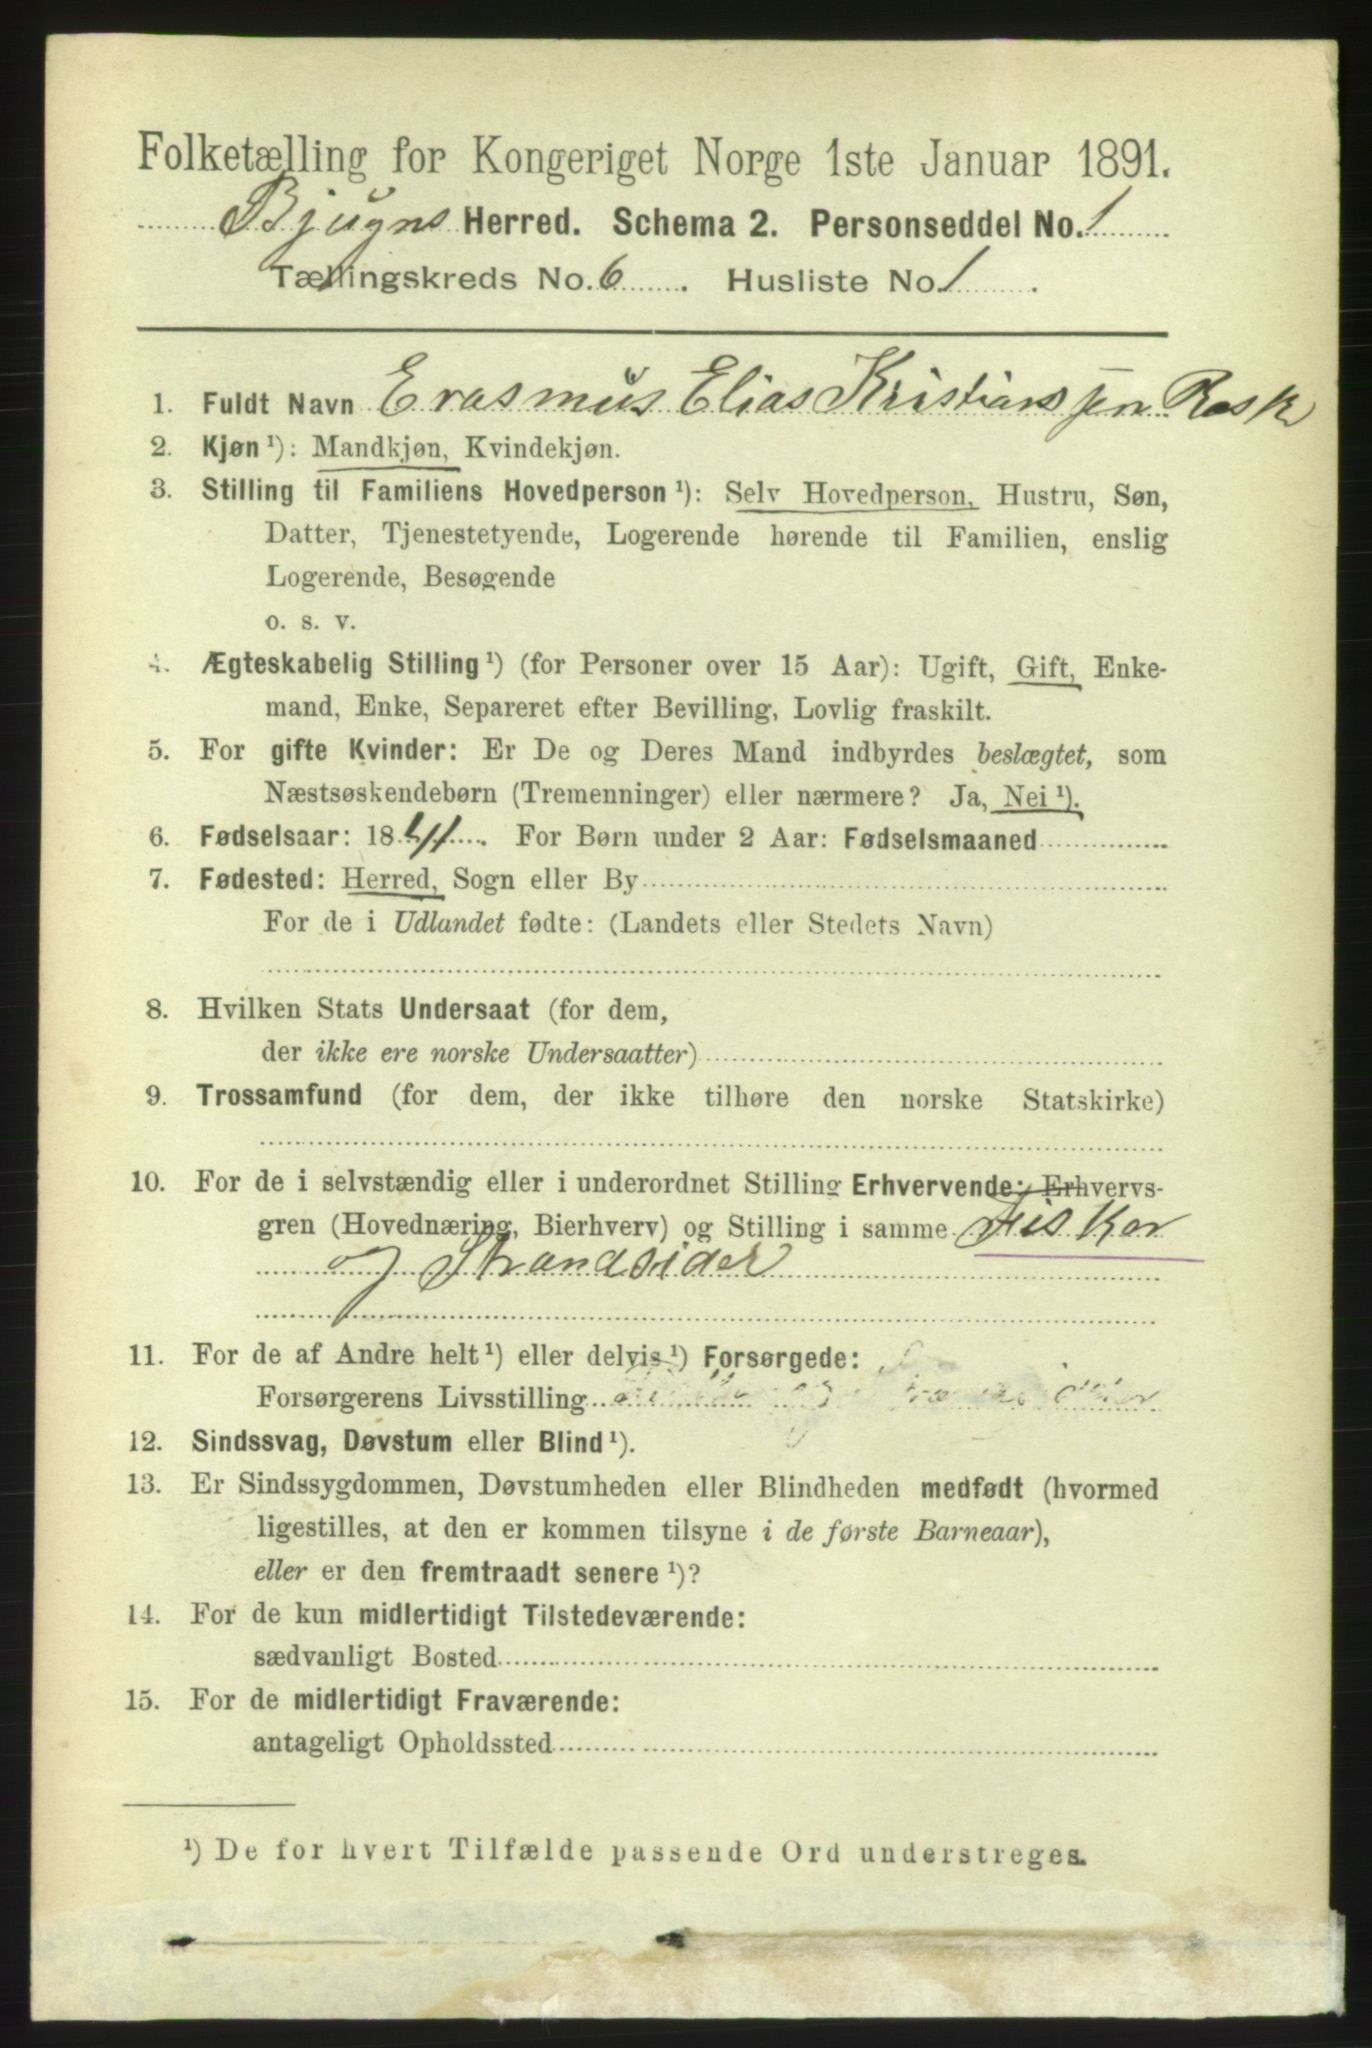 Folketælling for Kongeriget Norge 1ste Januar 1891.
Bjugns Herred. Schema 2. Personseddel No. 1
Tællingskreds No. 6 . Husliste No. 1 .
1. Fuldt Navn Erasmus Elias Kristianssen Rask
2. Kjøn ¹): Mandkjøn, Kvindekjøn.
3. Stilling til Familiens Hovedperson ¹): Selv Hovedperson, Hustru, Søn,
Datter, Tjenestetyende, Logerende hørende til Familien, enslig
Logerende, Besøgende
o. s. v.
4. Ægteskabelig Stilling ¹) (for Personer over 15 Aar): Ugift, Gift, Enke-
mand, Enke, Separeret efter Bevilling, Lovlig fraskilt.
5. For gifte Kvinder: Er De og Deres Mand indbyrdes beslægtet, som
Næstsøskendebørn (Tremenninger) eller nærmere? Ja, Nei ¹).
6. Fødselsaar: 1841. For Børn under 2 Aar: Fødselsmaaned
7. Fødested: Herred, Sogn eller By
For de i Udlandet fødte: (Landets eller Stedets Navn)
8. Hvilken Stats Undersaat (for dem,
der ikke ere norske Undersaatter)
9. Trossamfund (for dem, der ikke tilhøre den norske Statskirke)
10. For de i selvstændig eller i underordnet Stilling Erhvervende: Erhvervs-
gren (Hovednæring, Bierhverv) og Stilling i samme Fisker
og Strandsider
11. For de af Andre helt ¹) eller delvis ¹) Forsørgede:
Forsørgerens Livsstilling
12. Sindssvag, Døvstum eller Blind ¹).
13. Er Sindssygdommen, Døvstumheden eller Blindheden medfødt (hvormed
ligestilles, at den er kommen tilsyne i de første Barneaar),
eller er den fremtraadt senere ¹)?
14. For de kun midlertidigt Tilstedeværende:
sædvanligt Bosted
15. For de midlertidigt Fraværende:
antageligt Opholdssted
¹) De for hvert Tilfælde passende Ord understreges.